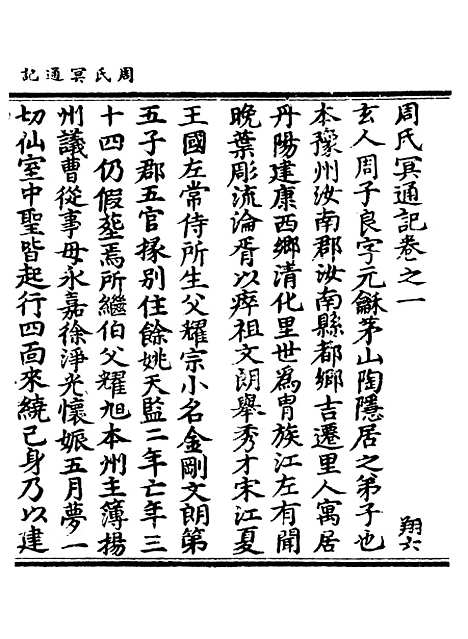 周氏冥通記
周氏冥通記卷之一
翔六
玄人周子良字元龢茅山陶隱居之弟子也
本豫州汝南郡汝南縣都鄉吉遷里人寓居
丹陽建康西鄉清化里世爲胄族江左有聞
晚葉彫流淪胥以瘁祖文朗舉秀才宋江夏
王國左常侍所生父耀宗小名金剛文朗第
五子郡五官掾別住餘姚天監二年亡年三
十四仍假塟焉所繼伯父耀旭本州主簿揚
州議曹從事母永嘉徐淨光懷娠五月夢一
切仙室中聖皆起行四面來繞己身乃以建